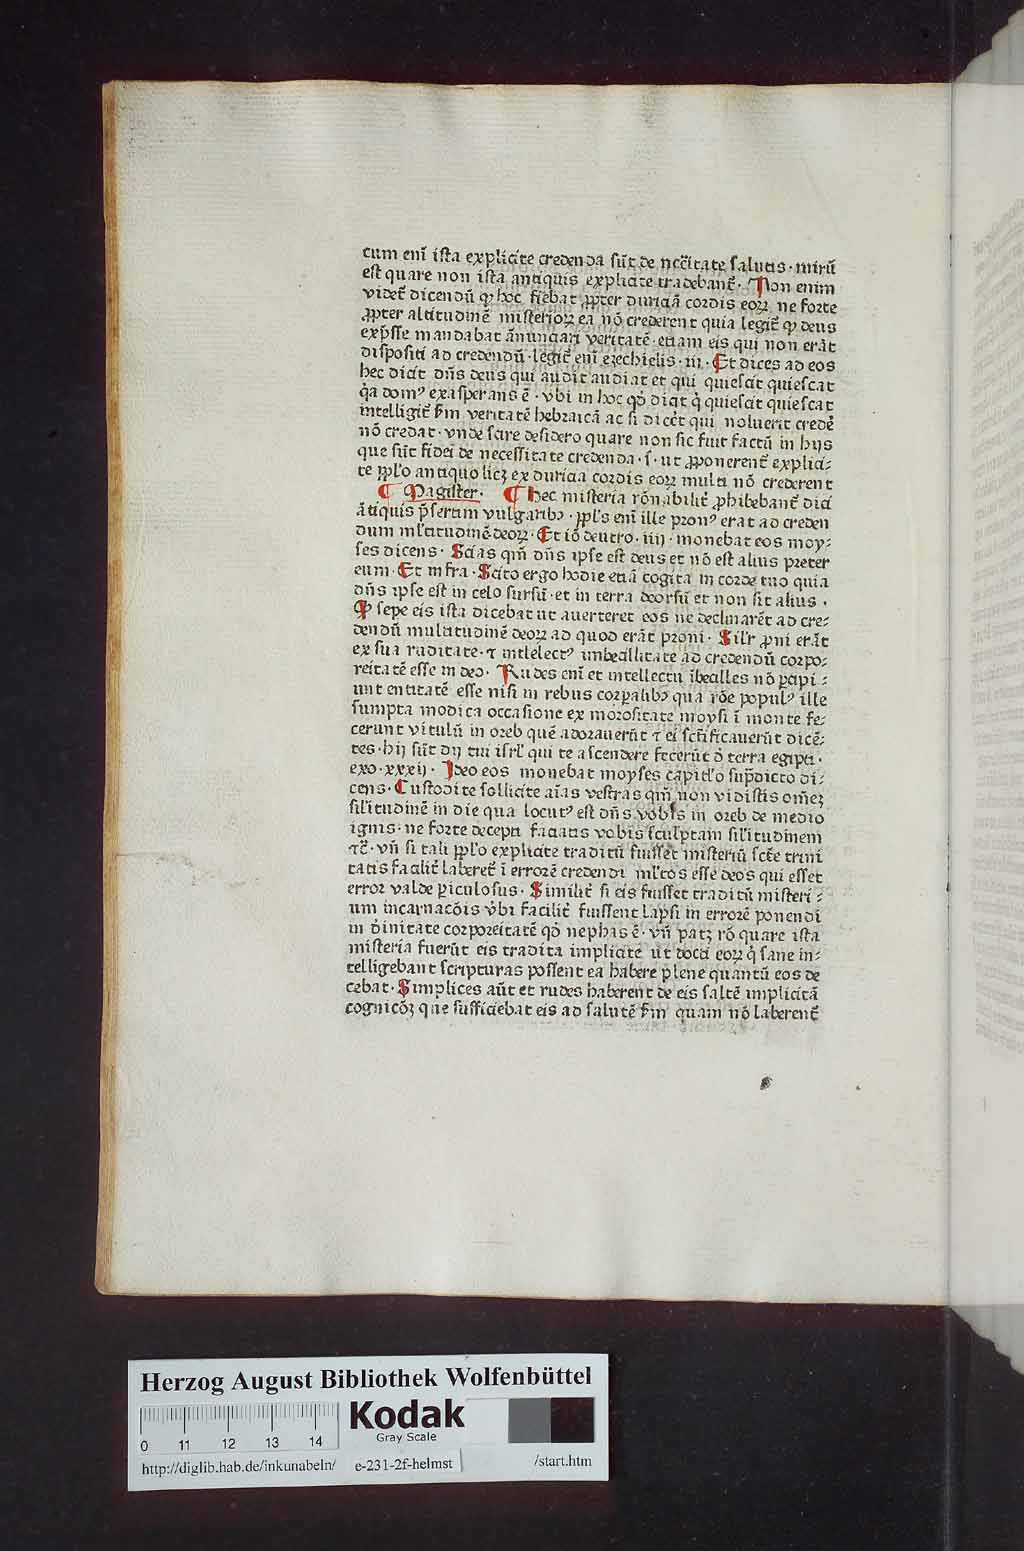 cum enī ista explicite credenda sūt de nccītate salutis · mirū
est quare non ista antiquis explicite tradebant᷑ · Non enim
videt᷑ dicendū ꝙ hoc fiebat ꝓpter duriciā cordis eoꝝ ne forte
ꝓpter altitudinē misterioꝝ ea nō crederent quia legit᷑ ꝙ deus
exp̄sse mandabat ānunciari veritatē · etiam eis qui non erāt
dispositi ad credendū · legit᷑ enī ezechielis · iii · Et dices ad eos
hec dicit dn̄s deus qui audit audiat et qui quiescit quiescat
q̇a domꝰ exasperans ē · vbi in hoc qd̓ dicit q̇ quiescit quiescat
intelligit᷑ ẜm veritatē hebraicā ac si dicēt qui noluerit credē
nō credat · vnde scire desidero quare non sic fuit factū in hijs
que sūt fidei de necessitate credenda · s · ut ꝓponerent᷑ explici⸗
te ppl̓o antiquo licꝫ ex duricia cordis eoꝝ multi nō crederent
¶ Magister · ¶ Hec misteria rōnabilit᷑ ꝓhibebant᷑ dici
ātiquis p̄sertim vulgaribꝰ · ppl̓s enī ille pronꝰ erat ad creden
dum ml̓titudinē deoꝝ · Et iō deutro · iiij · monebat eos moy⸗
ses dicens · Scias qm̄ dn̄s ipse est deus et nō est alius preter
eum · Et infra · Scito ergo hodie etiā cogita in corde tuo quia
dn̄s ipse est in celo sursū · et in terra deorsū et non sit alius ·
Ꝙ sepe eis ista dicebat ut averteret eos ne declinarēt ad cre⸗
dendū multitudinē deoꝝ ad quod erāt proni · Sil̓r ꝓni erāt
ex sua ruditate · ⁊ intelectꝰ imbecillitate ad credendū corpo⸗
reitatē esse in deo · Rudes enī et intellectu ībecilles nō ꝑcipi⸗
unt entitatē esse nisi in rebus corꝑalibꝰ qua rōe populꝰ ille
sumpta modica occasione ex morositate moysi ī monte fe⸗
cerunt vitulū in oreb quē adoraverūt ⁊ ei sct̄ificaverūt dicē⸗
tes · hij sūt dij tui isrl̓ qui te ascendere fecerūt ō terra egipti ·
exo · xxxij · Ideo eos monebat moyses capitl̓o sup̄dicto di⸗
cens · Custodite sollicite aīas vestras qm̄ non vidistis om̄eꝫ
sil̓itudinē in die qua locutꝰ est dn̄s vobis in oreb de medio
ignis · ne forte decepti faciatis vobis sculptam sil̓itudinem
⁊c̄ · vn̄ si tali ppl̓o explicite traditū fuisset misteriū scte̅ trini
tatis facilit᷑ laberet᷑ ī errorē credendi ml̓tos esse deos qui esset
error valde ꝑiculosus · Similit᷑ si eis fuisset traditū misteri⸗
um incarnacōis vbi facilit᷑ fuissent lapsi in errorē ponendi
in divitate corporeitatē qd̓ nephas ē · vn̄ patꝫ rō quare ista
misteria fuerūt eis tradita implicite ut docti eoꝝ q̇ sane in⸗
telligebant scripturas possent ea habere plene quantū eos de
cebat · Simplices aūt et rudes haberent de eis saltē implicitā
cognicōꝫ que sufficiebat eis ad salutē ẜm quam nō laberent᷑
Herzog August Bibliothek Wolfenbüttel
Kodak
Gray Scale
0 11 12 13 14
http://diglib.hab.de/inkunabeln/ e-231-2f-helmst /start.htm